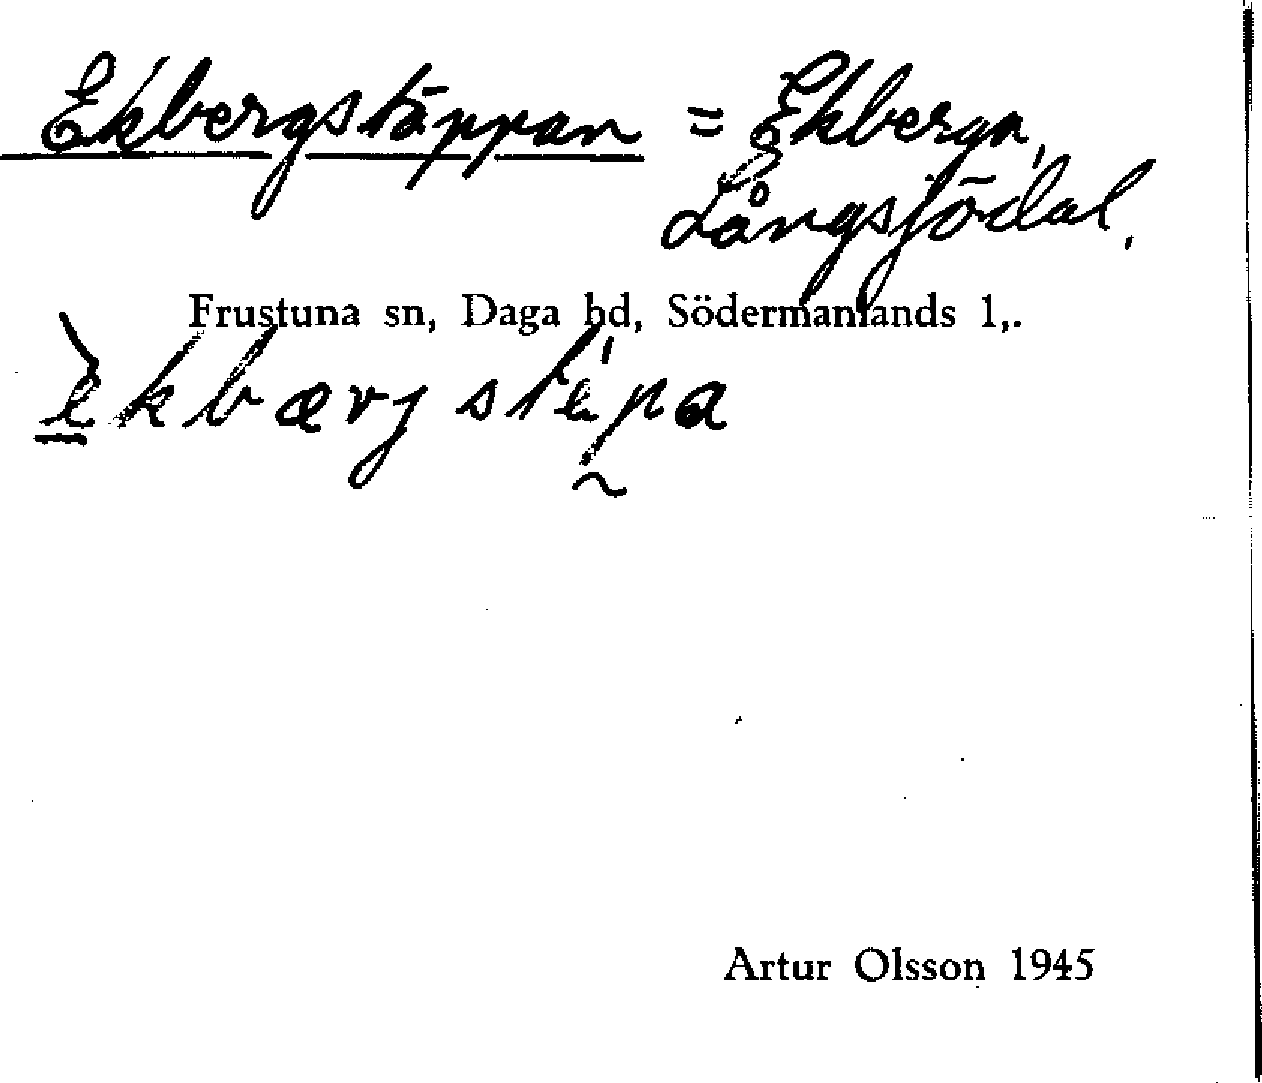 Ekbergstäppan = Ekbergn,
Långsjödal.
Frustuna sn, Daga hd, Södermanlands l,.
Artur Olsson 1945